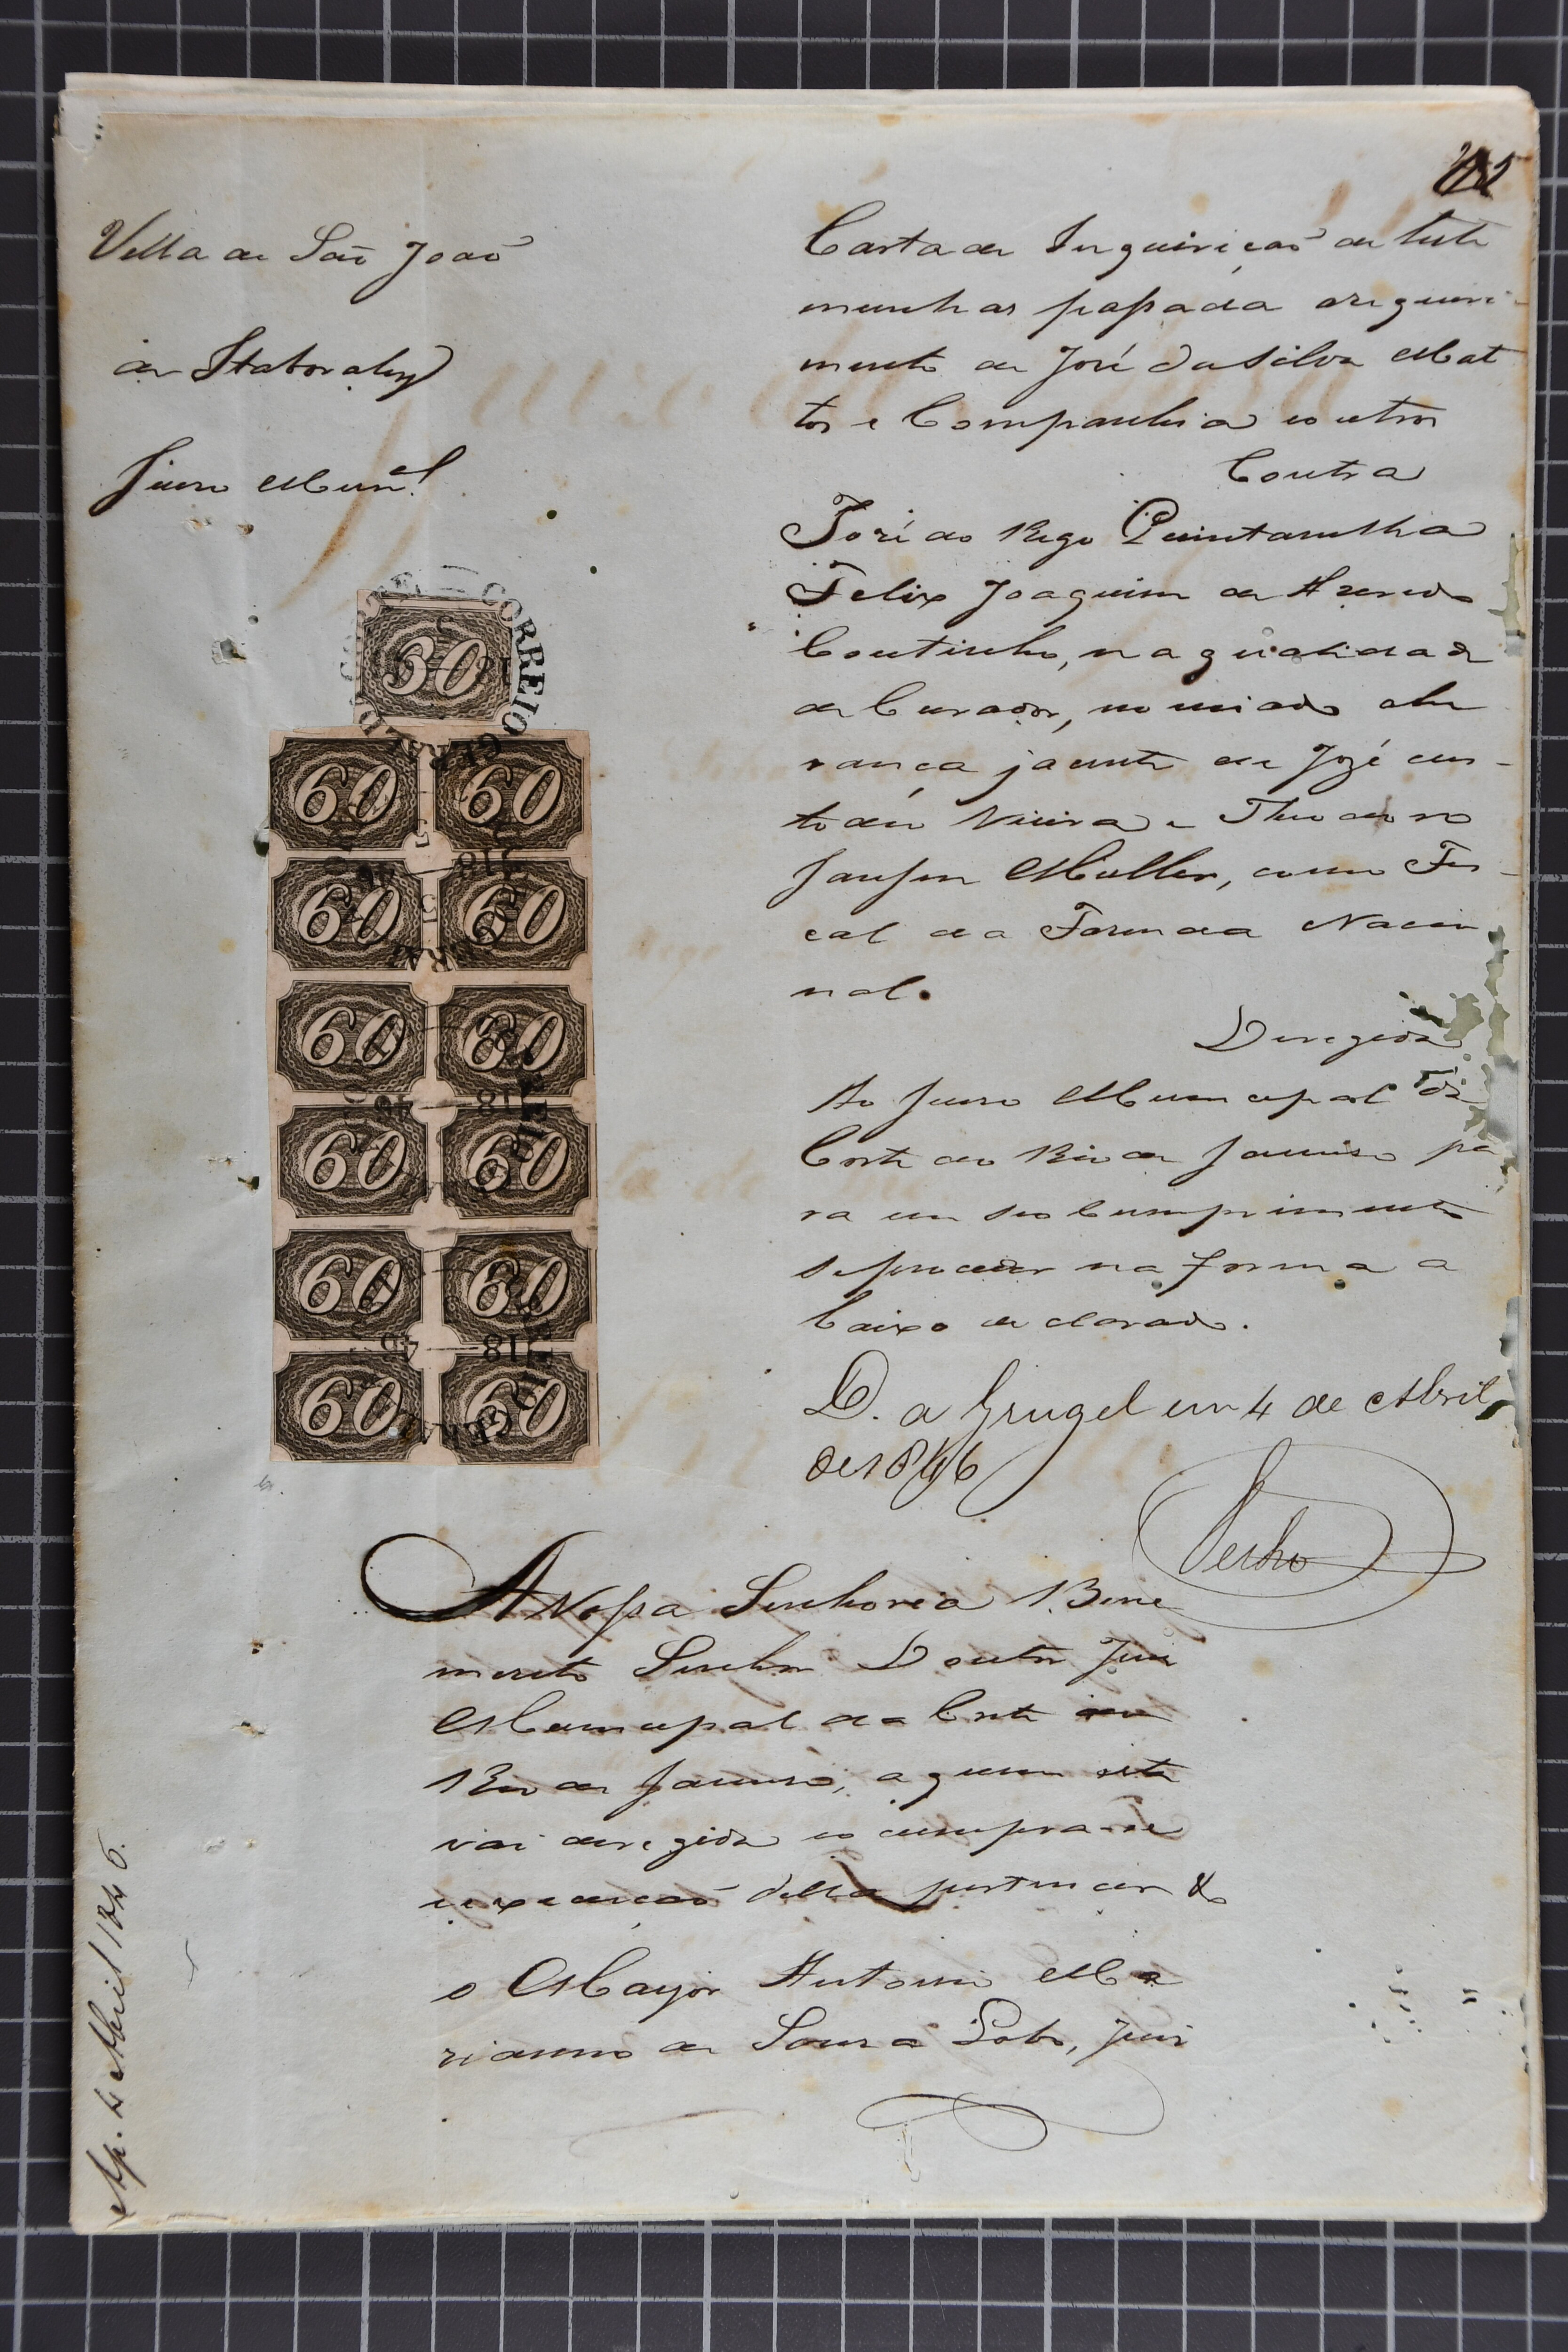 Villa de São João
de Itaborahy
Juiso Mun.al
Carta de Inquirição de teste
munhas passada arequeri
mento de José da Silva Mat
tos e Companhia e outros
Contra
José do Rego Quintanilha
Felix Joaquim de Azeredo
Coutinho, na qualidade
de Curador, nomiado ahe
rança jacente de José Cus-
todio Vieira e Theodoro
Jansen Müller, como Fis-
cal da Fazenda Nacio
nal.
Deregida
Ao Juiso Municipal da
Corte do Rio de Janeiro pa
ra em seo Cumprimento
seproceder na forma a
baixo declarado.
D. a Grugel em 4 de Abril
de 1846
CORREIO GERAL DA CORTE
60
60 60
60 60
60 60
60 60
60 60
60 60
A Vossa Senhoria Bene
merito Senhor Doutor Juis
Municipal da Corte do
Rio de Janeiro, a quem esta
vai deregida e o cumpra-se
e execução della pertencer &
o Mayor Antonio Ma
rianno de Sousa Lobo, Juis
Ap. 4 Abril 1846.